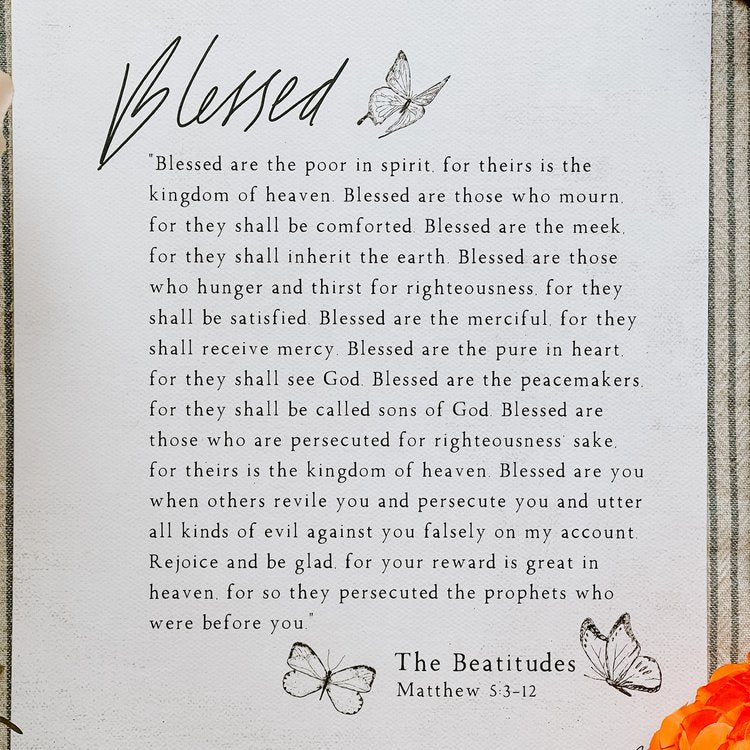 Blessed
"Blessed are the poor in spirit, for theirs is the
kingdom of heaven. Blessed are those who mourn,
for they shall be comforted. Blessed are the meek,
for they shall inherit the earth. Blessed are those
who hunger and thirst for righteousness, for they
shall be satisfied. Blessed are the merciful, for they
shall receive mercy. Blessed are the pure in heart,
for they shall see God. Blessed are the peacemakers,
for they shall be called sons of God. Blessed are
those who are persecuted for righteousness' sake,
for theirs is the kingdom of heaven. Blessed are you
when others revile you and persecute you and utter
all kinds of evil against you falsely on my account.
Rejoice and be glad, for your reward is great in
heaven, for so they persecuted the prophets who
were before you."
The Beatitudes
Matthew 5:3-12